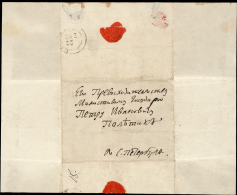 Его Превосходительству
Милостивому Государю
Петру Ивановичу
Полѣтикѣ
въ С. Петербургѣ